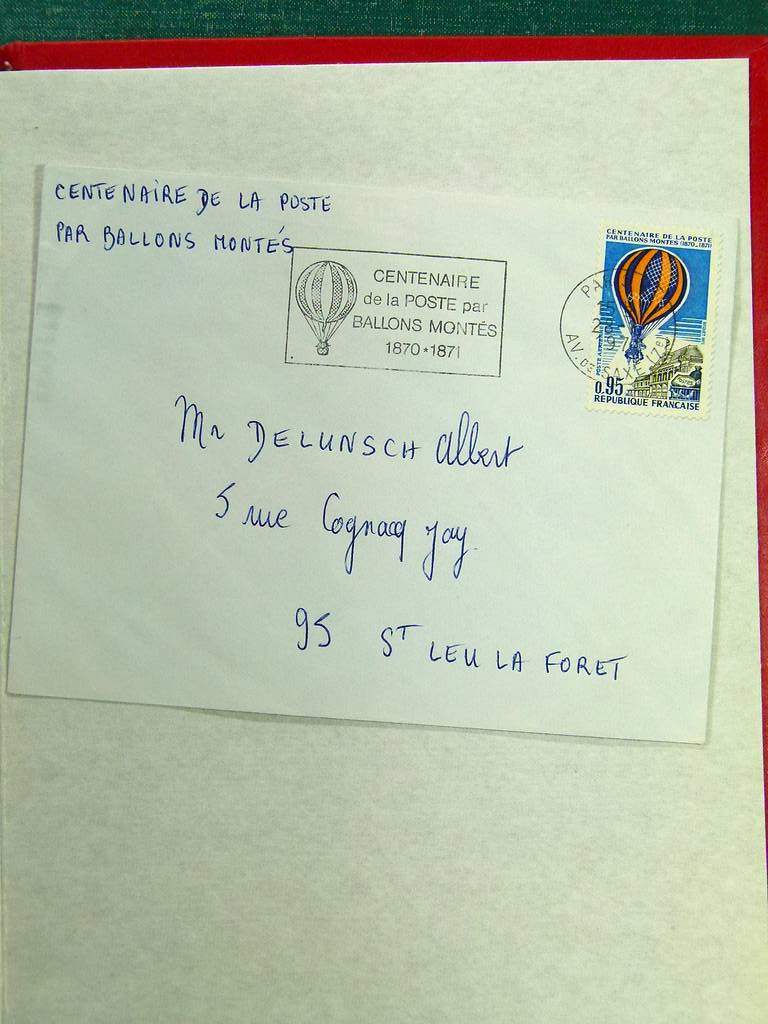 CENTENAIRE DE LA POSTE
PAR BALLONS MONTÉS
CENTENAIRE
de la POSTE par
BALLONS MONTÉS
1870★1871
CENTENAIRE DE LA POSTE
PAR BALLONS MONTÉS (1870-1871)
POSTE AÉRIENNE
0.95
REPUBLIQUE FRANCAISE
AV. DE SAXE
Mr DELUNSCH Albert
5 rue Cognacq Jay.
95 ST LEU LA FORET